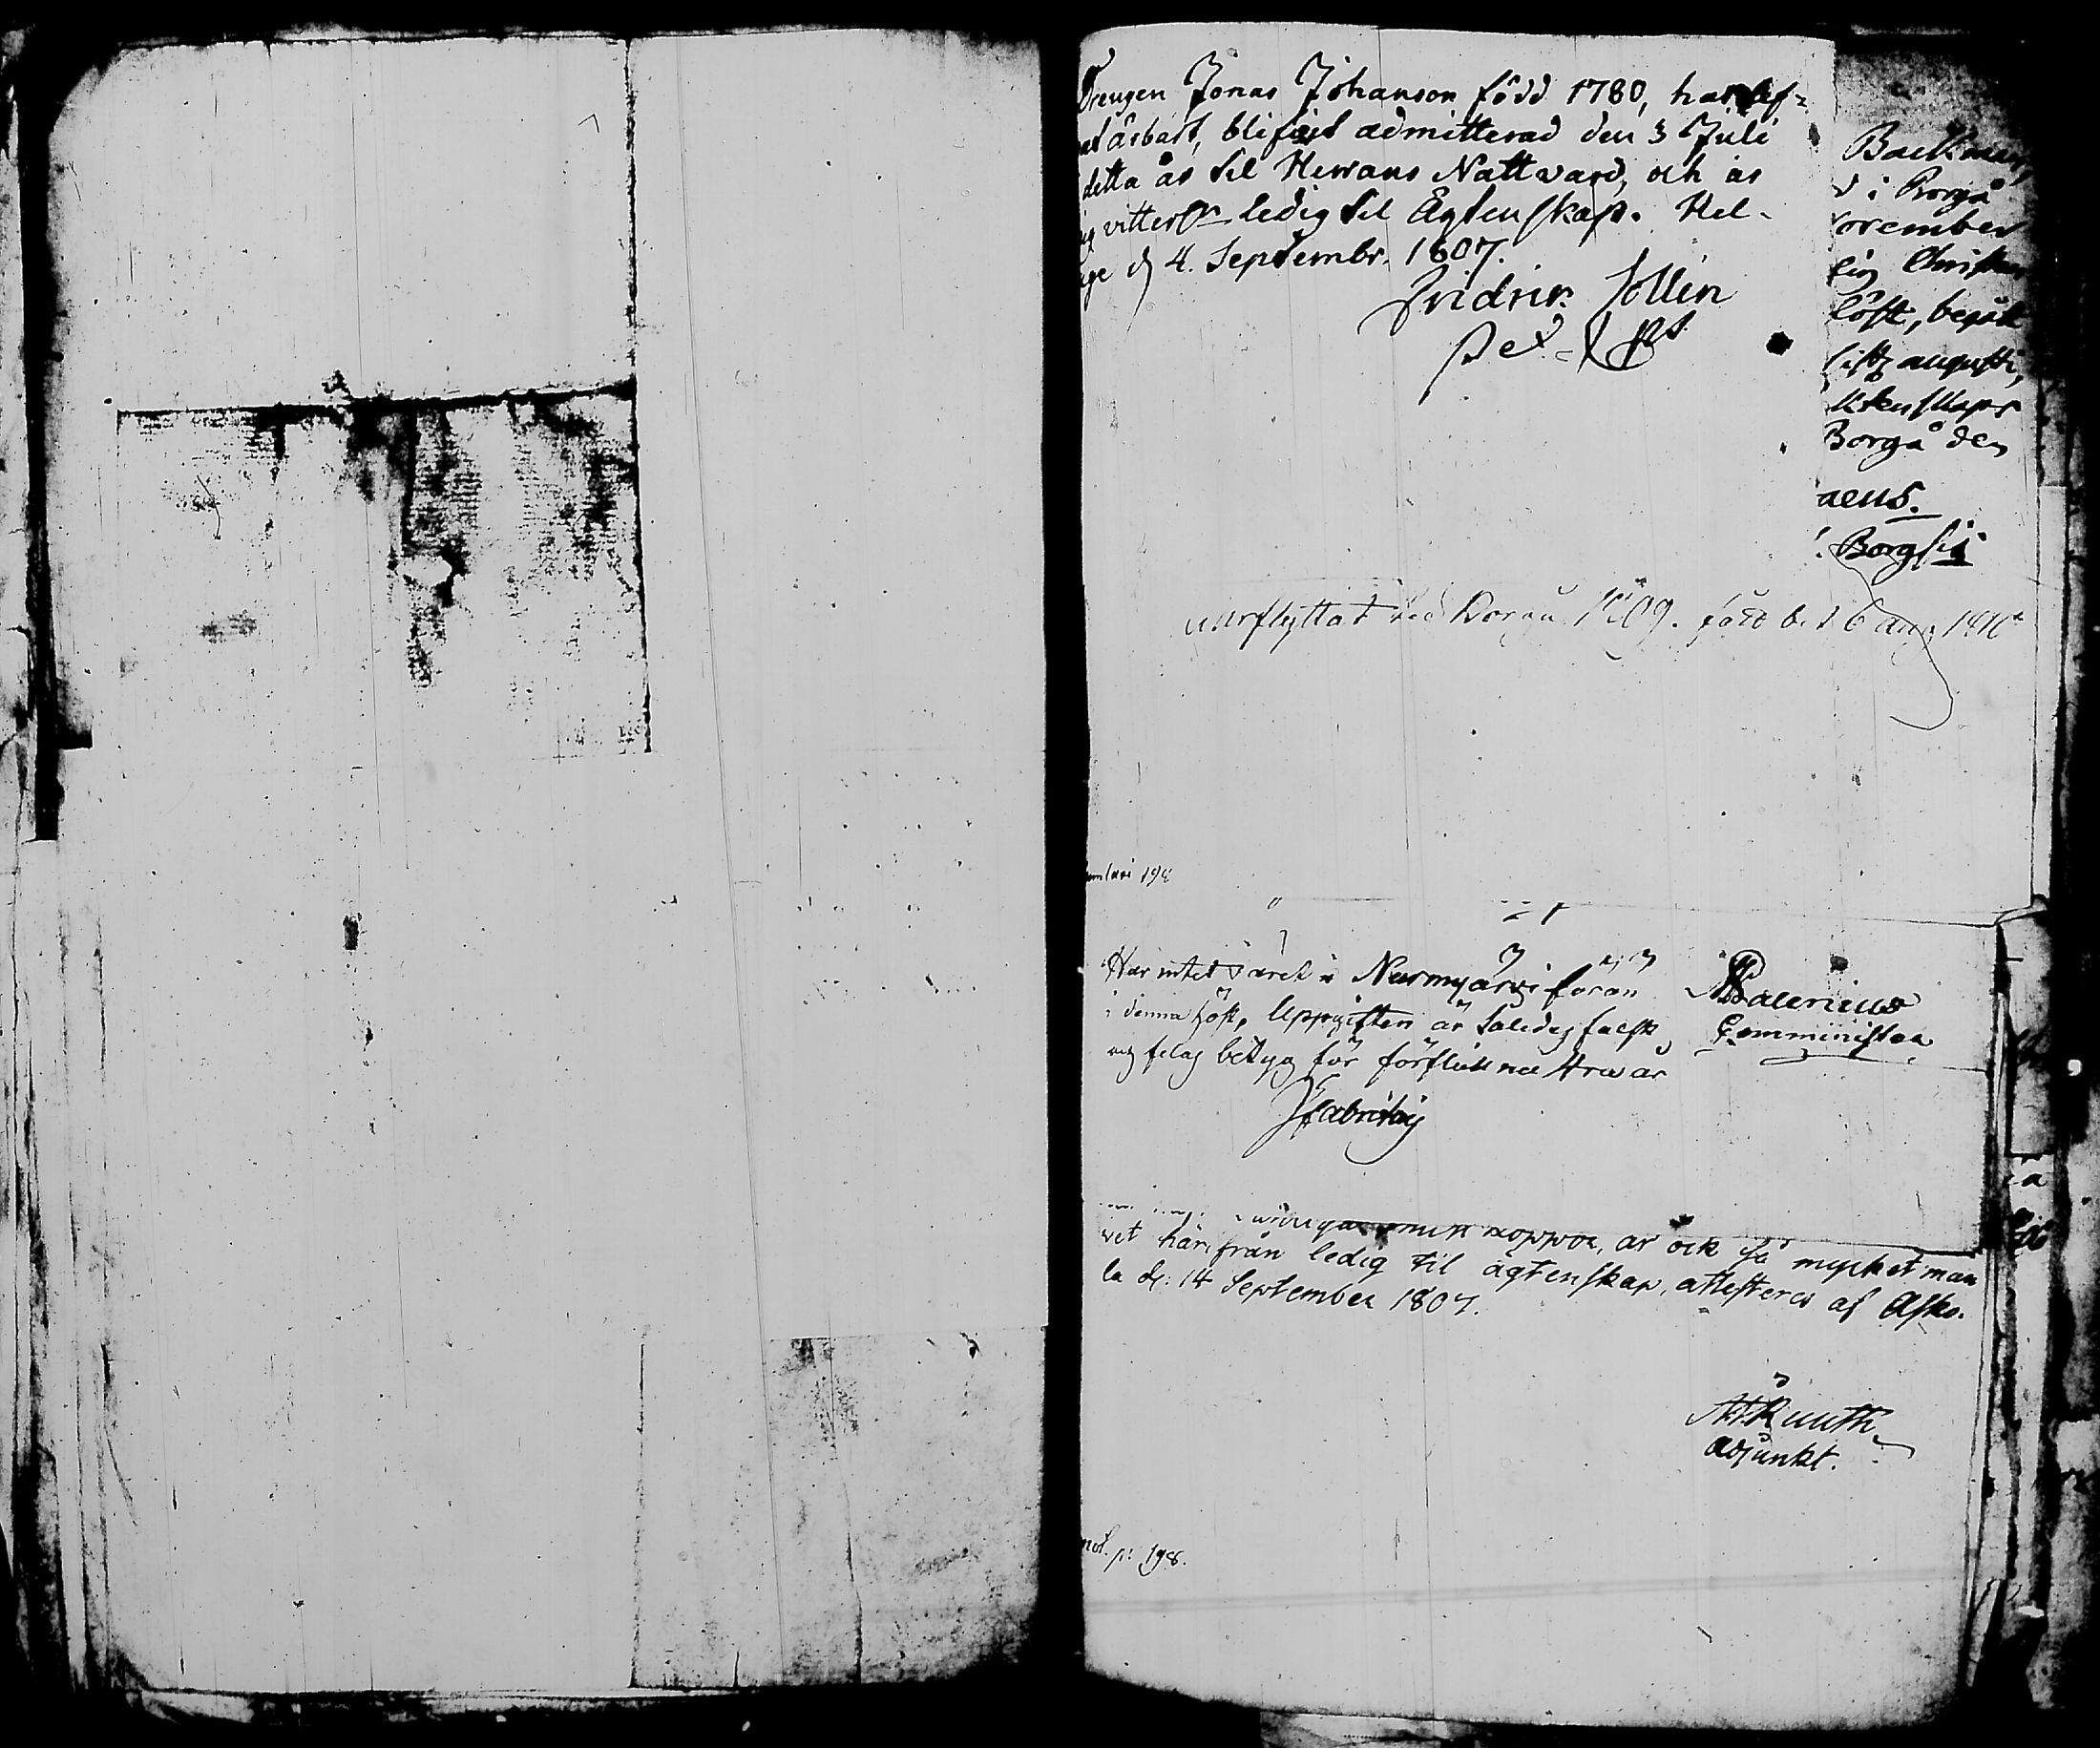 Drengen Jonas Johanson född 1780, har lef=
at ärbart, blifvit admitterad den 3 Juli
detta år til Herrans Nattvard, och är
vitterl. ledig til Ägtenskap. Hel-
ge d 4. Septembr. 1807.
Fridric Sollin
Backman,
d i Borgå
November
sin Christen
löst, begåt
sistl. augusti,
ktenskaps
Borgå den
aeus.
Borgsis
utflyttat till Borgå 1809. fått b. d 6 aug 1810
194
Har intet varit i Nurmijärvi förän
i denna höst. Uppgiften är således falsk,
betyg för förflutna År är
Fabritius
Valerius
Comminister
koppor, är ock så mycket man
vet härifrån ledig til ägtenskap, attesteras af Asko-
la d: 14 September 1807.
Kuuth
adjunkt.
not. p: 198.